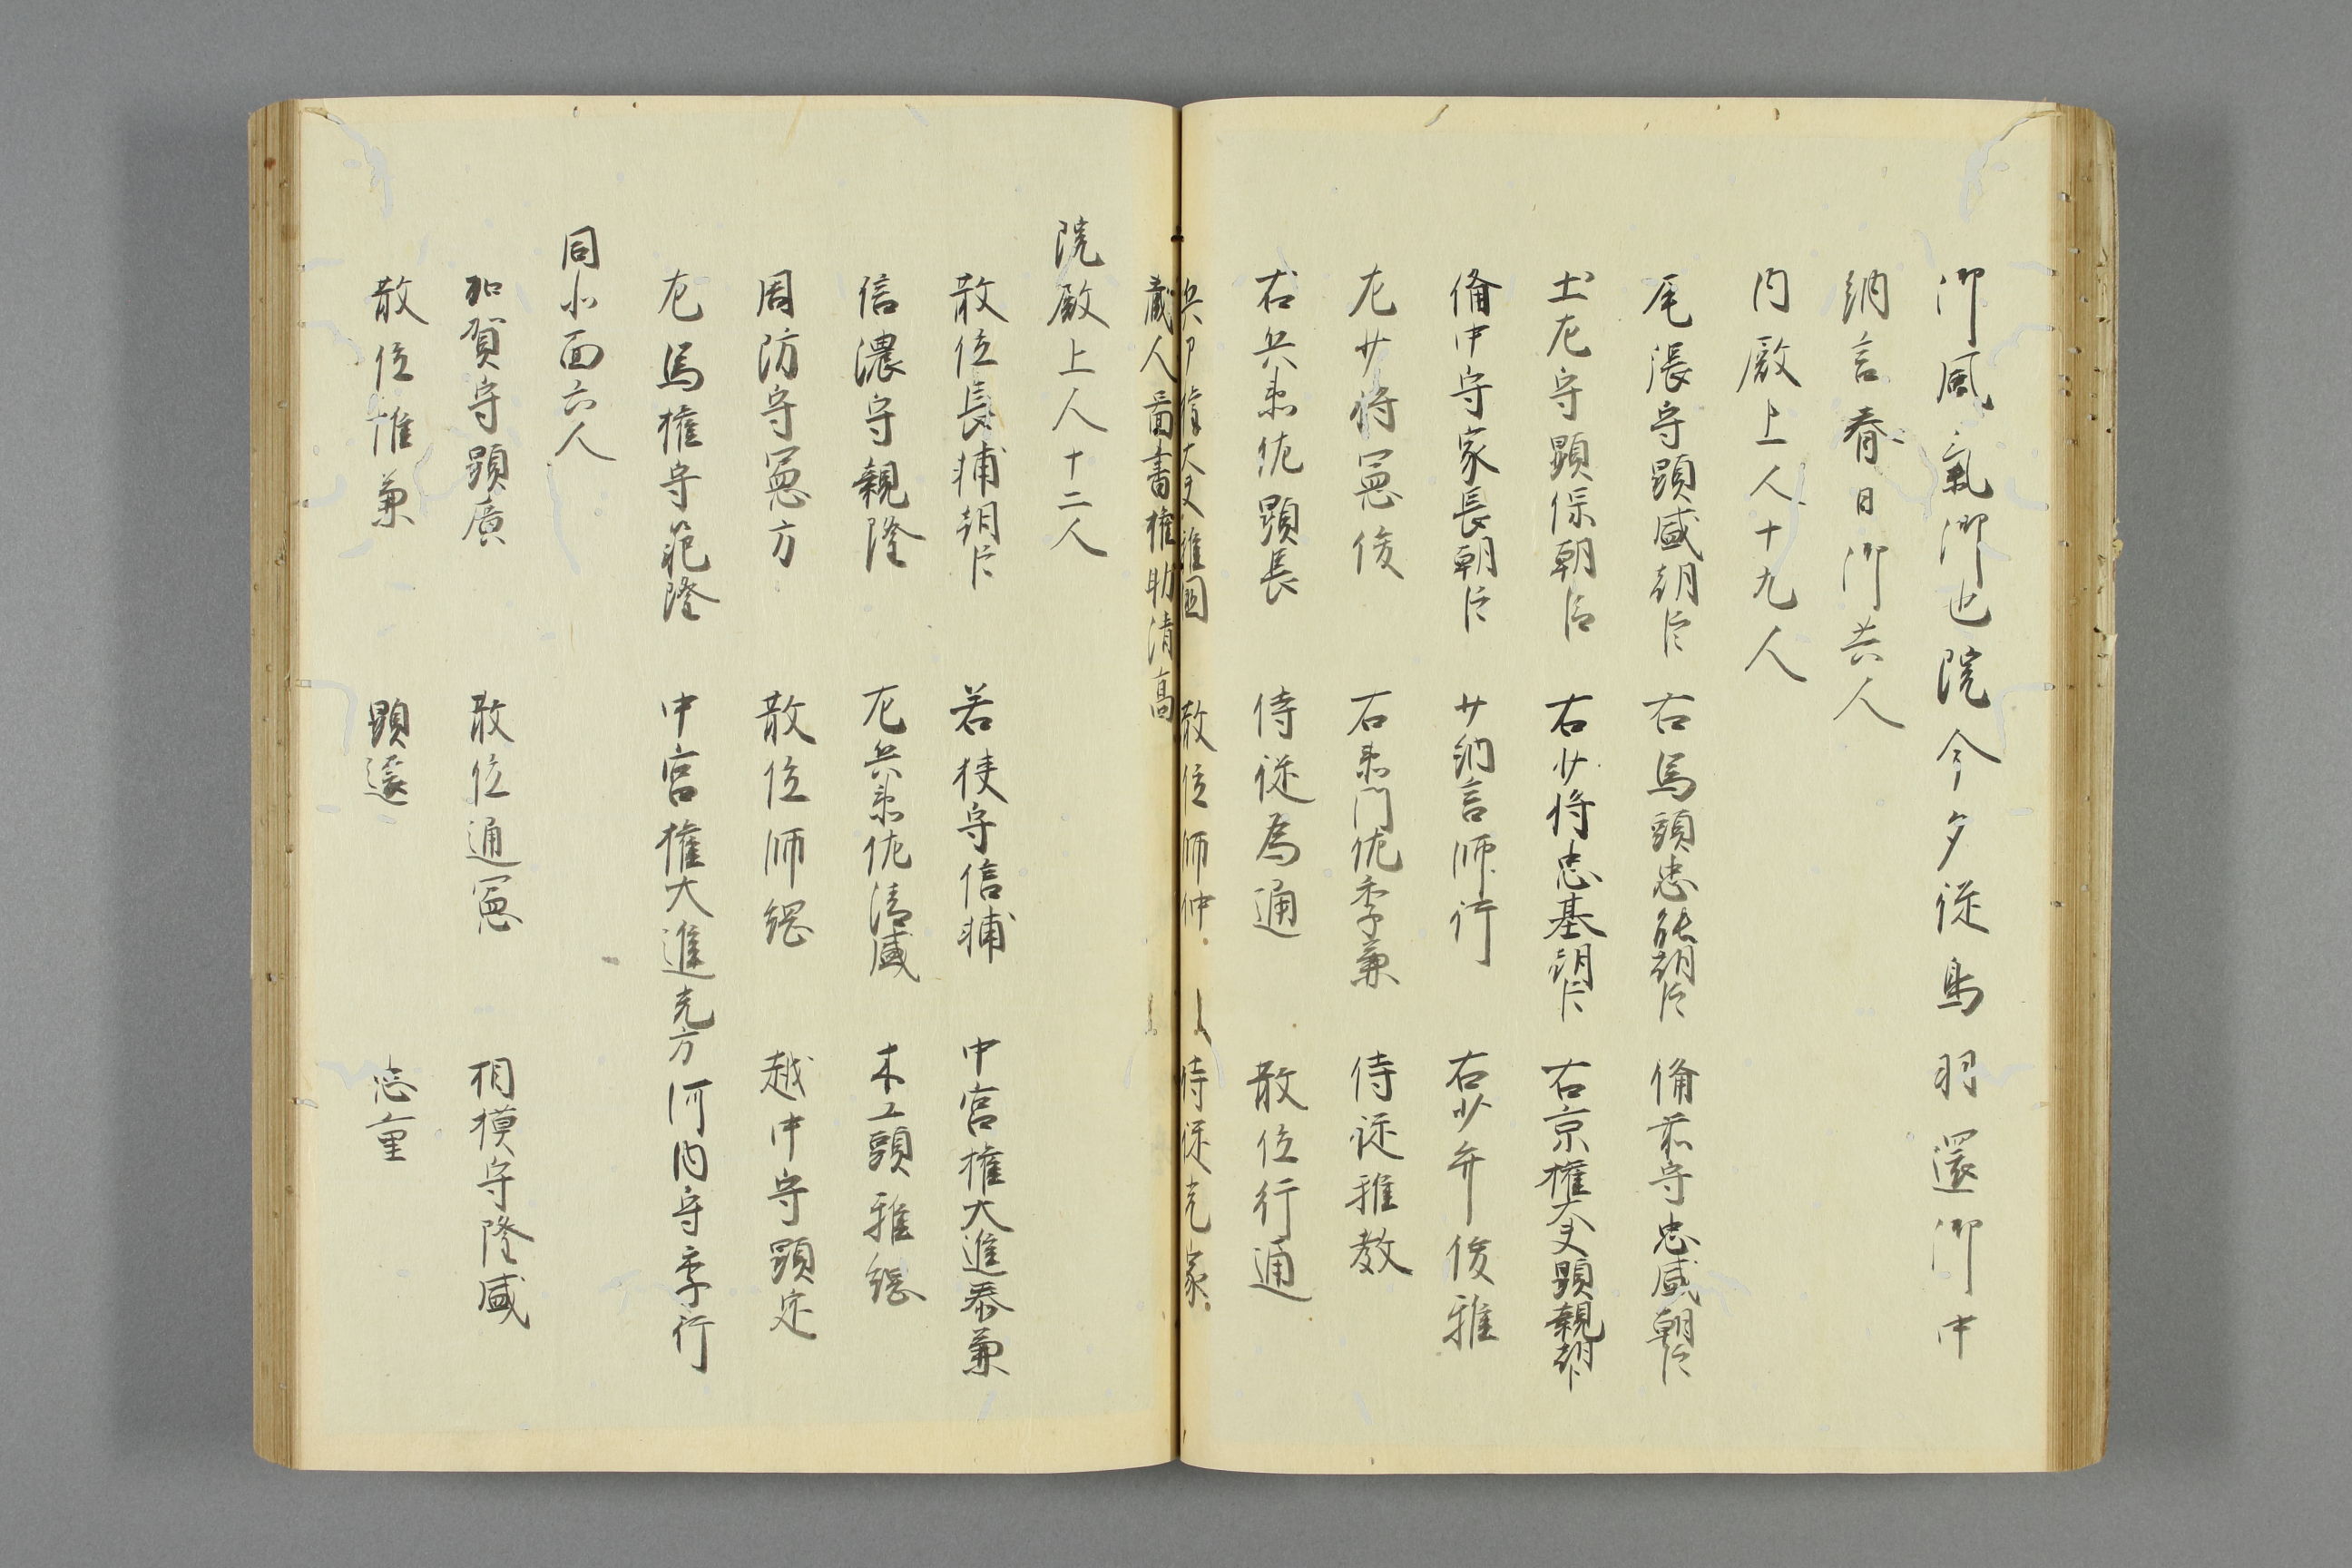 御風氣御也院今夕従鳥羽還御中
納言春日御共人
内殿上人十九人
尾張守顕盛朝臣 右馬頭忠能朝臣 備前守忠盛朝臣
土左守顕保朝臣 右少将忠基朝臣 右京権大夫顕親朝臣
備中守家長朝臣 少納言師行 右少弁俊雅
左少将憲俊 右衛門佐季兼 侍従雅教
右兵衛佐顕長 侍従為通 散位行通
兵部権大夫雅国 散位師仲 侍従光家
蔵人図書権助清高
院殿上人十二人
散位長輔朝臣 若狭守信輔 中宮権大進泰兼
信濃守親隆 左兵衛佐清盛 木工頭雅綱
周防守憲方 散位師綱 越中守顕定
左馬権守範隆 中宮権大進光方 河内守季行
同北面六人
加賀守顕廣 散位通憲 相模守隆盛
散位惟兼 顕遠 忠重